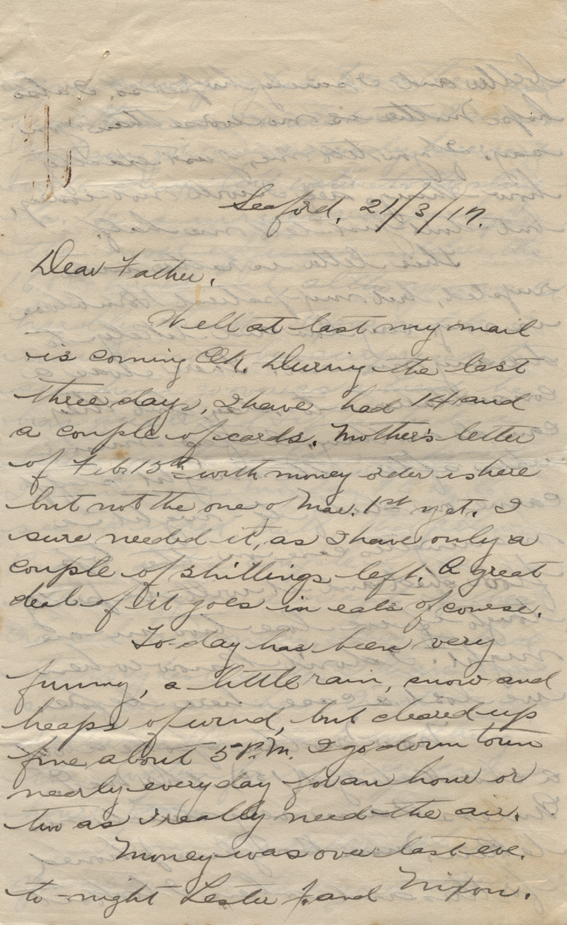 Seaford, 21/3/17.
Dear Father.
Well at last my mail
is coming O.K. During the last
three days, I have had 14 and
a couple of cards. Mother's letter
of Feb 13th with money order is here
but not the one of Mar. 1st yet. I
sure needed it, as I have only a
couple of shillings left. A great
deal of it goes in eats of course.
To-day has been very
funny, a little rain, snow and
heaps of wind, but cleared up
fine about 5 P.M. I go down town
nearly everyday for an hour or
two as I really need the air.
Money was over last eve.
to-night Lester J. and Nixon.